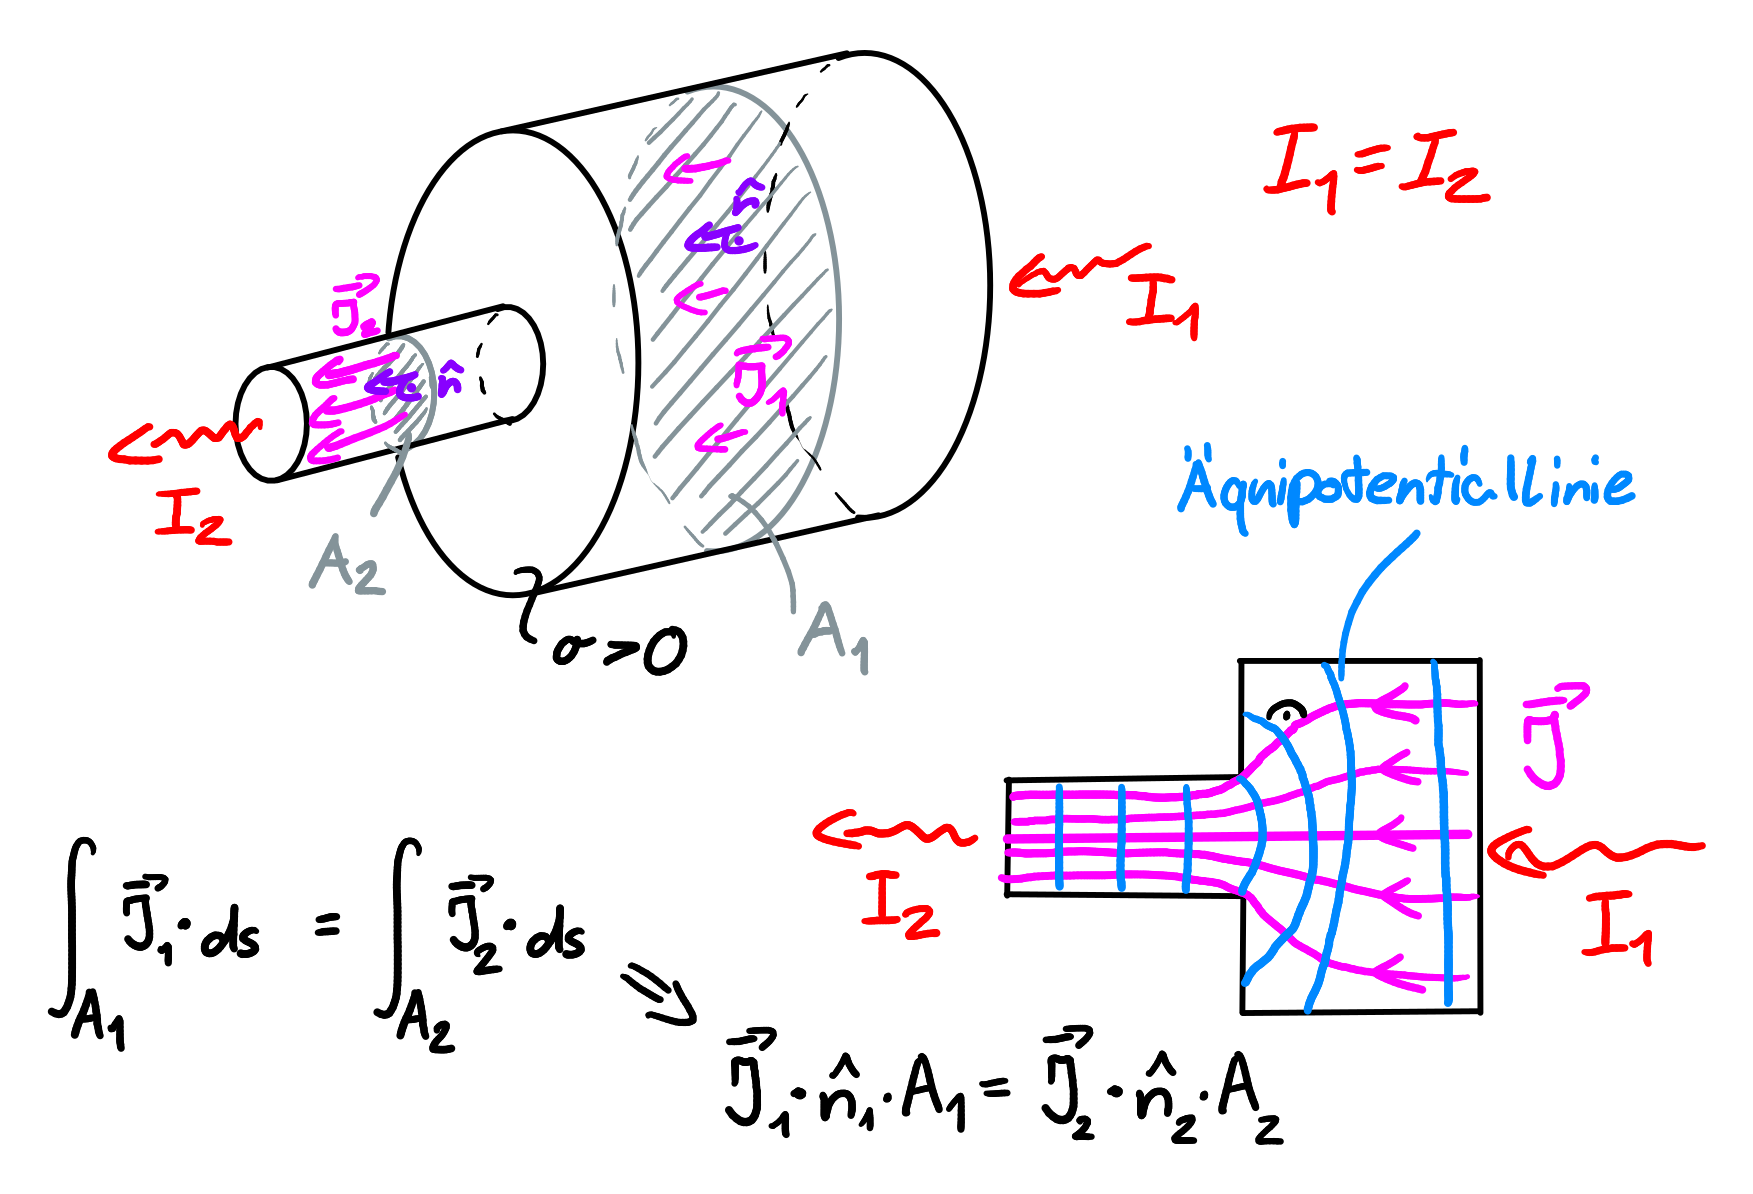 I₁ = I₂
n̂
I₁
J⃗₂
n̂
J⃗₁
I₂
A₂
A₁
σ > 0
Äquipotentiallinie
J⃗
I₂
I₁
∫_A₁ J⃗₁ · ds = ∫_A₂ J⃗₂ · ds ⇒
J⃗₁ · n̂₁ · A₁ = J⃗₂ · n̂₂ · A₂